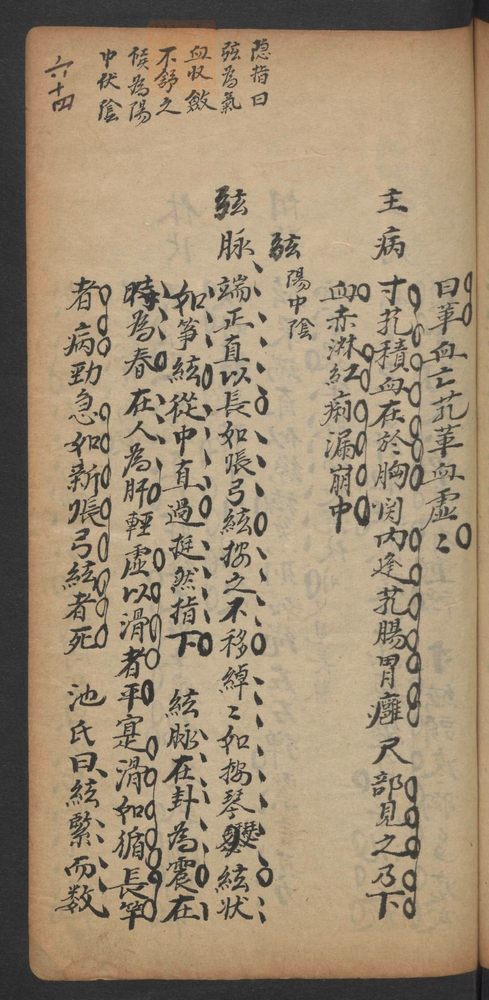 曰革血亡芤革血虛〻
主病 寸芤積血在於胸関内逢芤腸胃癰尺部見之乃下
血赤淋紅痢漏崩中
弦 陽中陰
弦脉 端正直以長如張弓絃按之不移綽〻如按琴瑟絃状
如箏絃從中直過挺然指下 絃脉在卦為震在
時為春在人為肝輕虛以滑者平寔滑如循長竿
者病勁急如新張弓絃者死 池氏曰絃緊而数
蔭指曰
弦為氣
血收斂
不舒之
候為陽
中伏陰
六十四